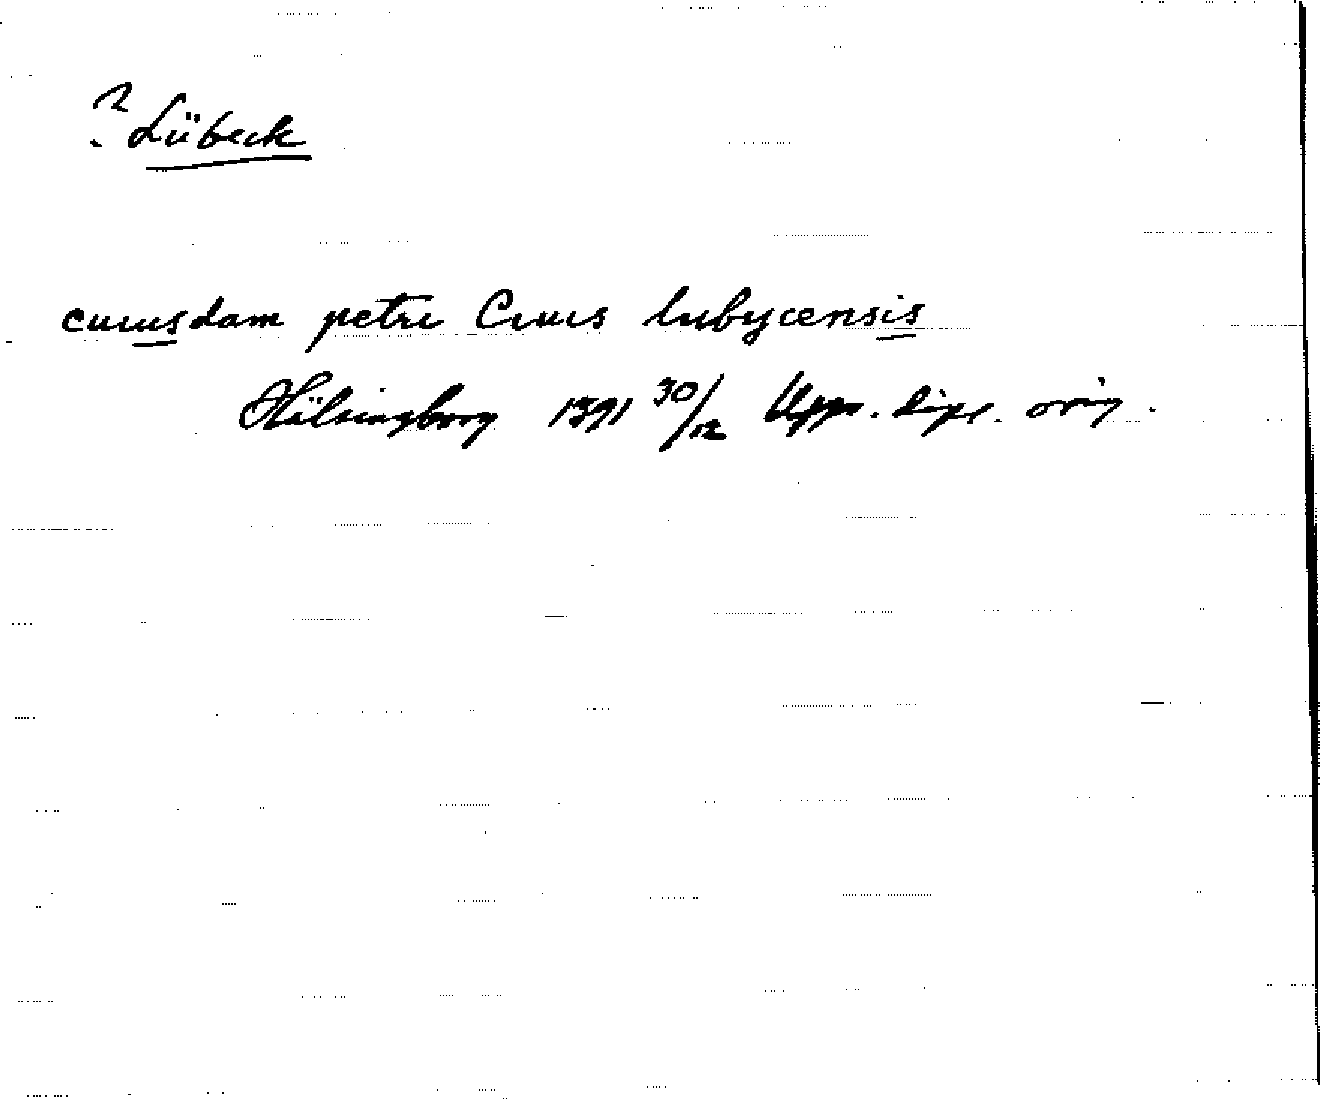 ? Lübeck
cuiusdam petri Cruis lubycensis
Hälsingborg 1391 30/12 Upps. dipl. orig.